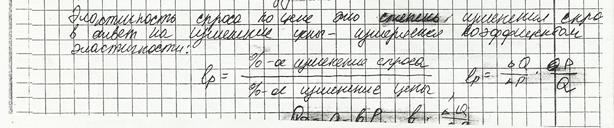 Эластичность спроса по цене это степень изменения спро
в ответ на изменение цены - измеряется коэффициентом
эластичности:
ep = %-ое изменение спроса / %-ое изменение цены ep = ΔQ/ΔP · P/Q